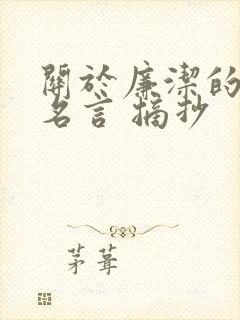 關於廉潔的
名言 摘抄
茅葺